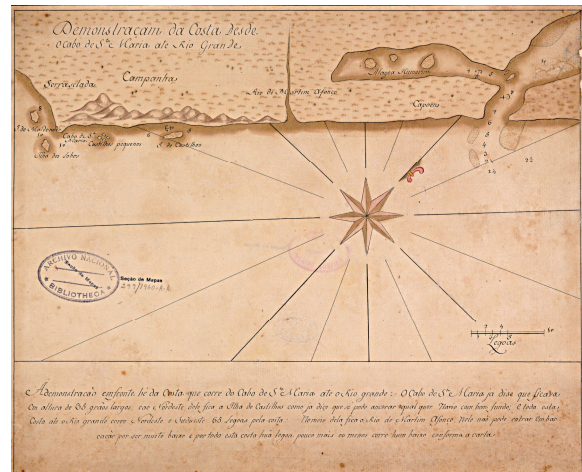 Demonstraçam da Costa desde
O Cabo de Sta Maria ate Rio Grande
Campanha
Serraselada
Rio de Martim Afonco
Alagoa Humerim
Capoens
Cabo de Sta
Maria
Castilhos pequenos
I. de Castilhos
Ilha dos Lobos
ARCHIVO NACIONAL
Secção de Mappas
BIBLIOTHECA
Seção de Mapas
Legoas
A demonstracão emfronte hé da Costa que corre do Cabo de Sta Maria ate o Rio grande: O Cabo de Sta Maria ja dise que ficava
Em altura de 35 graos largos, eao Nordeste dele fica a Ilha de Castilhos como ja dice que se pode ancorar qual quer Navio com bom fundo, E toda esta
Costa ate o Rio grande corre Nordeste e Suduéste 65 Legoas pela costa: No meio dela fica o Rio de Martim Afonco, nele não pode entrar embar
cação por ser muite baixo e por toda esta costa hua legoa pouco mais ou menos corre hum baixo conforma a carta.